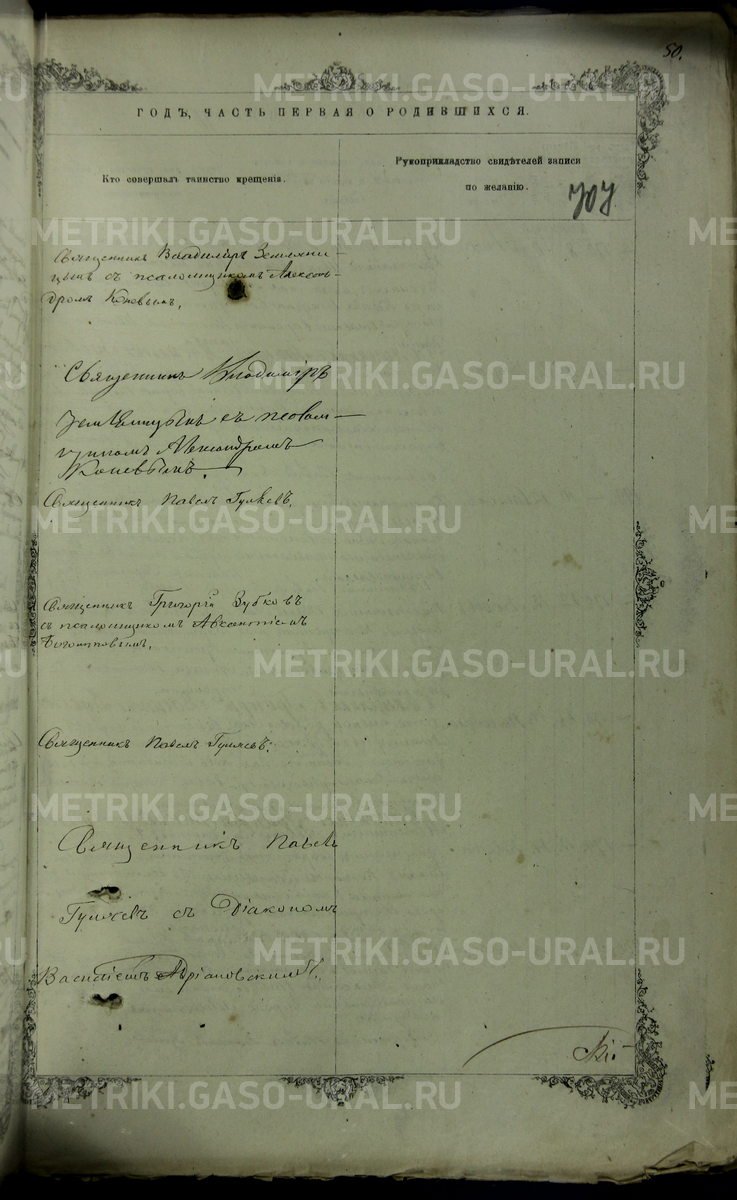 50.
ГОДЪ, ЧАСТЬ ПЕРВАЯ О РОДИВШИХСЯ.
Кто совершалъ таинство крещенія.
Рукоприкладство свидѣтелей записи
по желанію.
707
Священникъ Владиміръ Земляни-
цынъ съ псаломщикомъ Алексан-
дромъ Коневымъ.
Священникъ Владиміръ
Земляницынъ съ псалом-
щикомъ Александромъ
Коневымъ.
Священникъ Павелъ Гуляевъ.
Священникъ Григорій Зубковъ
съ псаломщикомъ Авксентіемъ
Священникъ Павелъ Гуляевъ.
Священникъ Павелъ
Гуляевъ съ Діакономъ
Василіемъ Адріановскимъ.
METRIKI.GASO-URAL.RU